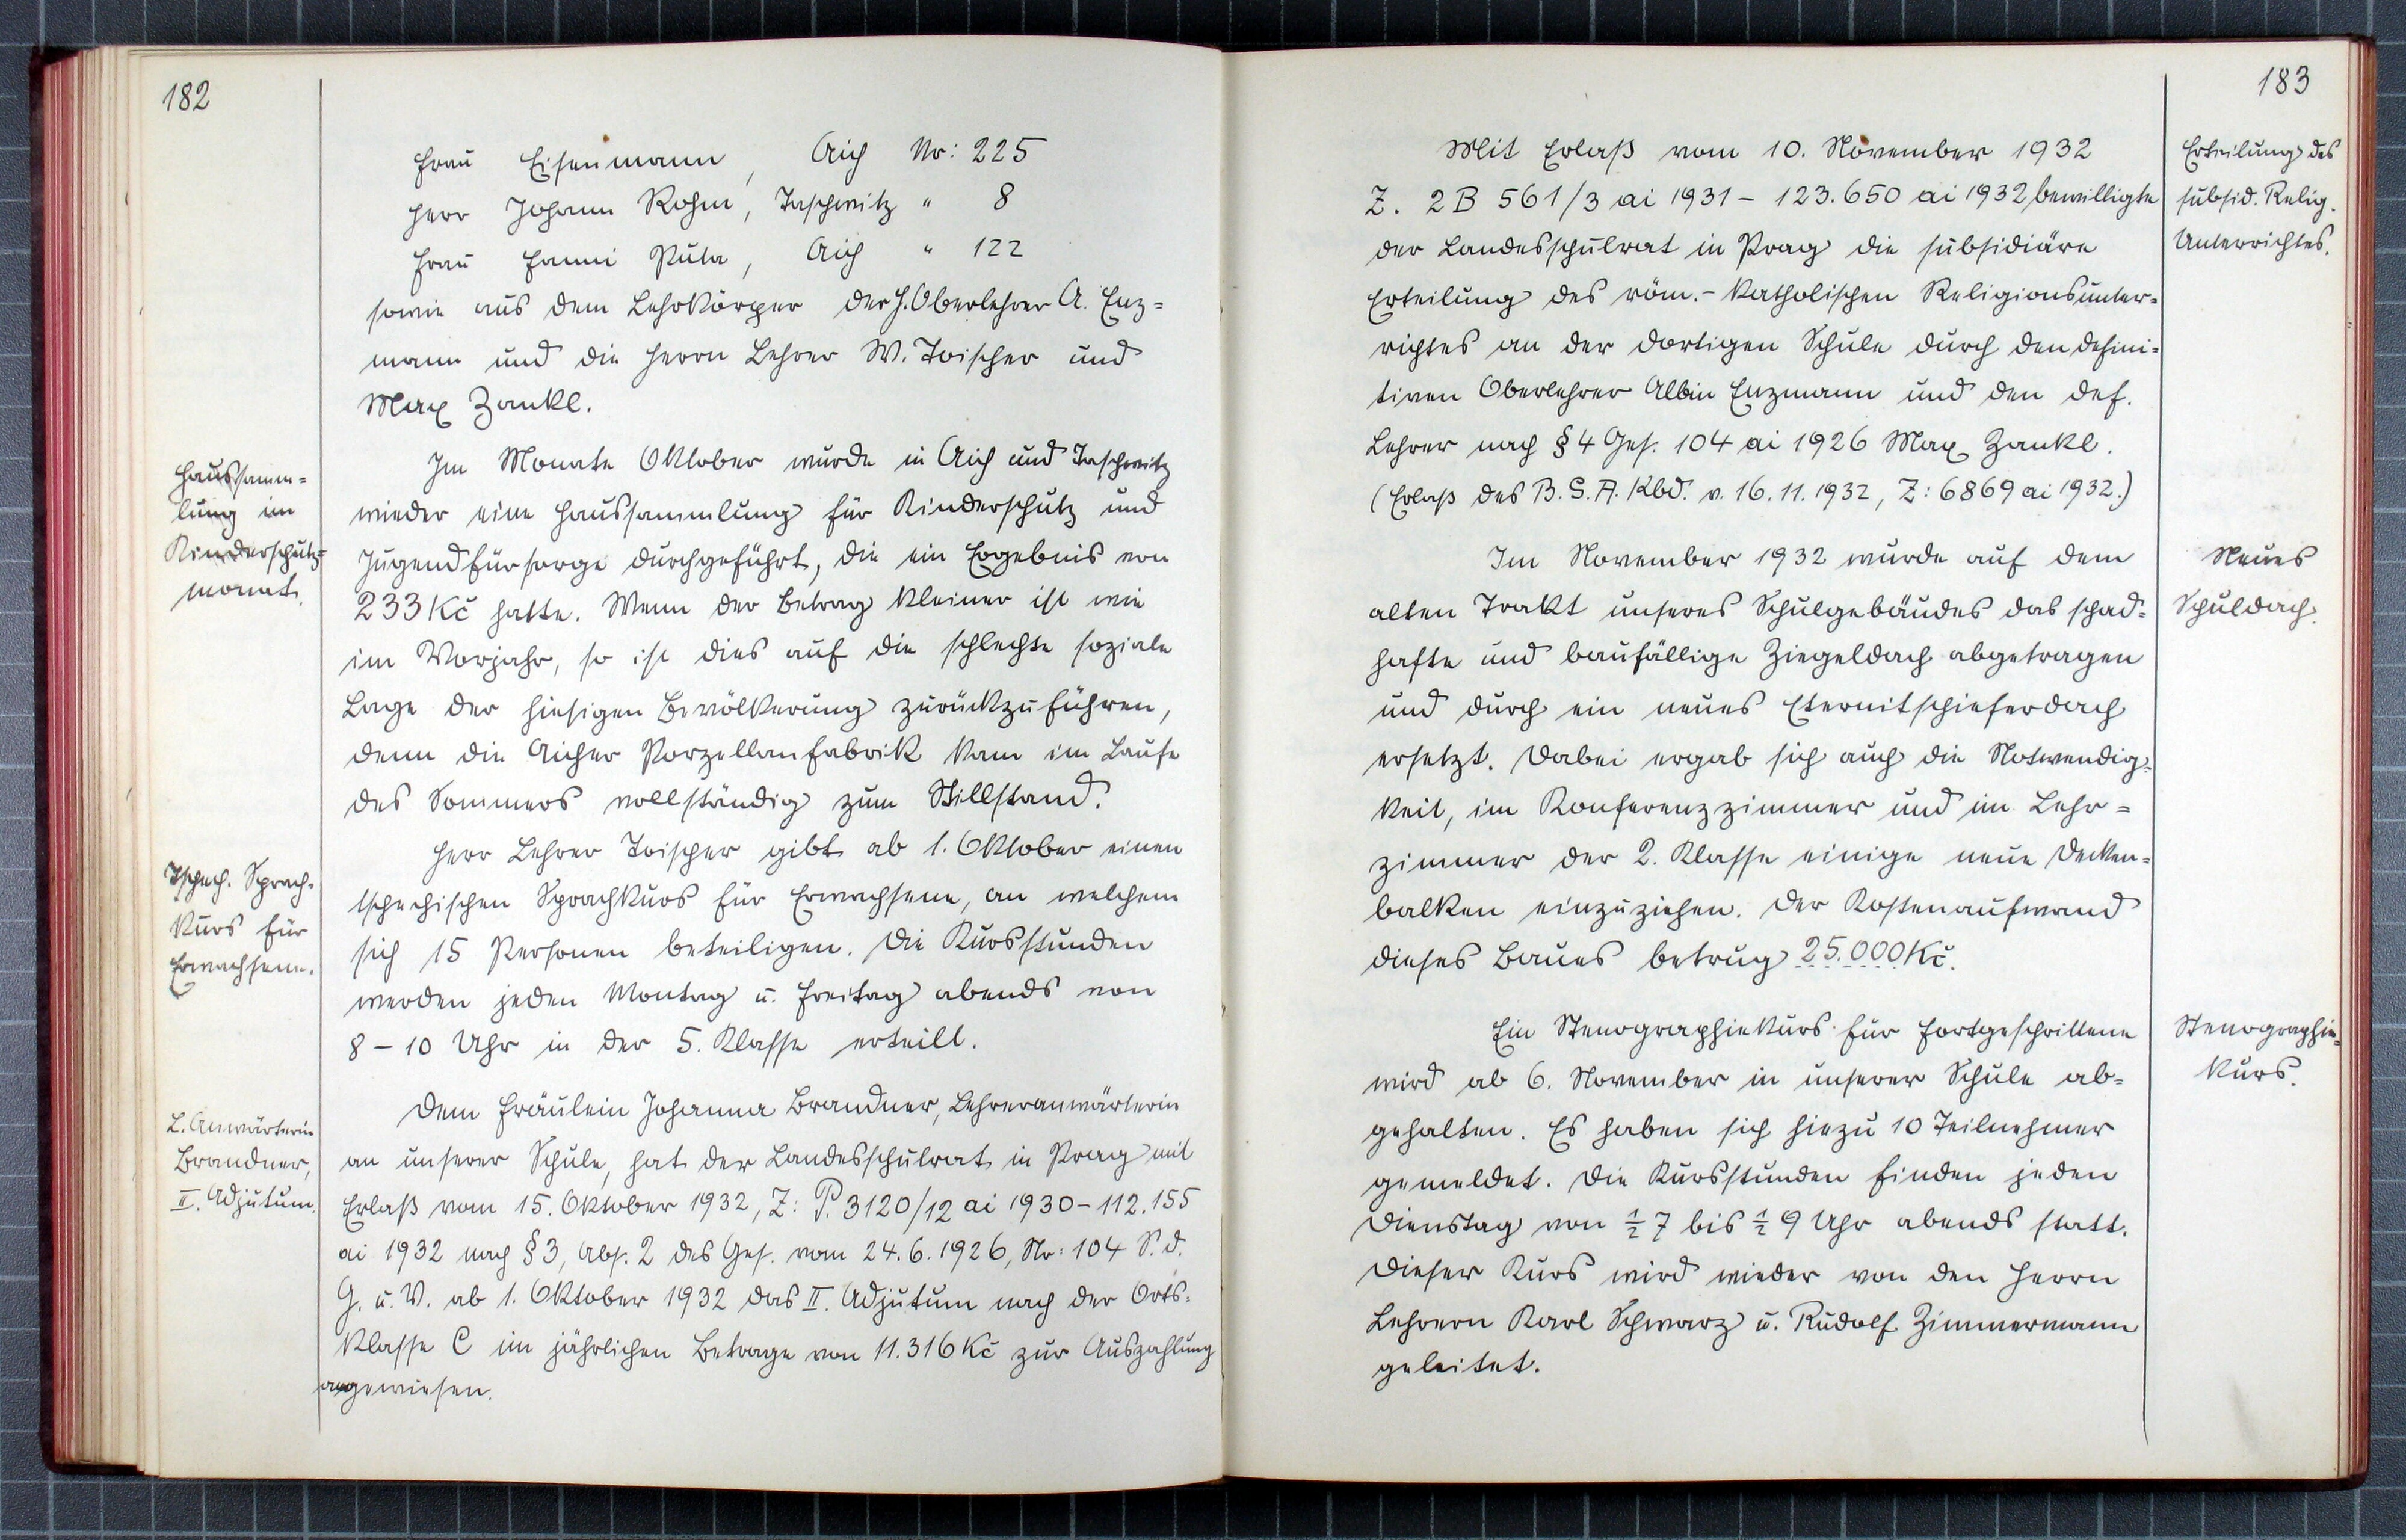 182
Frau Eisenmann, Aich Nr: 225
Herr Johann Rohm, Taschwitz " 8
Frau Fanni Puta, Aich " 122
sowie aus dem Lehrkörper der H. Oberlehrer A. Enz=
mann und die Herrn Lehrer W. Toischer und
Max Zankl.
Haussamm=
lung im
Kinderschutz=
monat.
Im Monate Oktober wurde in Aich und Taschwitz
wieder eine Haussammlung für Kinderschutz und
Jugendfürsorge durchgeführt, die ein Ergebnis von
233 Kč hatte. Wenn der Betrag kleiner ist wie
im Vorjahr, so ist dies auf die schlechte soziale
Lage der hiesigen Bevölkerung zurückzuführen,
denn die Aicher Porzellanfabrik kam im Laufe
des Sommers vollständig zum Stillstand.
Tschech. Sprach-
kurs für
Erwachsene.
Herr Lehrer Toischer gibt ab 1. Oktober einen
tschechischen Sprachkurs für Erwachsene, an welchem
sich 15 Personen beteiligen. Die Kursstunden
werden jeden Montag u. Freitag abends von
8 – 10 Uhr in der 5. Klasse erteilt.
L. Anwärterin
Brandner,
II. Adjutum.
Dem Fräulein Johanna Brandner, Lehreranwärterin
an unserer Schule, hat der Landesschulrat in Prag mit
Erlaß vom 15. Oktober 1932, Z: P. 3120/12 ai 1930 – 112.155
ai 1932 nach § 3, Abs. 2 des Ges. vom 24.6.1926, Nr: 104 S. d.
G. u. V. ab 1. Oktober 1932 das II. Adjutum nach der Orts-
klasse C im jährlichen Betrage von 11.316 Kč zur Auszahlung
angewiesen.
183
Mit Erlaß vom 10. November 1932
Z. 2 B 561/3 ai 1931 – 123.650 ai 1932 bewilligte
der Landesschulrat in Prag die subsidiäre
Erteilung des röm.- katholischen Religionsunter-
richtes an der dortigen Schule durch den defini=
tiven Oberlehrer Albin Enzmann und den def.
Lehrer nach § 4 Ges. 104 ai 1926 Max Zankl.
(Erlaß des B. S. A. Kbd. v. 16.11.1932, Z: 6869 ai 1932.)
Erteilung des
subsid. Relig.
Unterrichtes.
Im November 1932 wurde auf dem
alten Trakt unseres Schulgebäudes das schad=
hafte und baufällige Ziegeldach abgetragen
und durch ein neues Eternitschieferdach
ersetzt. Dabei ergab sich auch die Notwendig=
keit, im Konferenzzimmer und im Lehr=
zimmer der 2. Klasse einige neue Decken=
balken einzuziehen. Der Kostenaufwand
dieses Baues betrug 25.000 Kč.
Neues
Schuldach.
Ein Stenographiekurs für Fortgeschrittene
wird ab 6. November in unserer Schule ab=
gehalten. Es haben sich hiezu 10 Teilnehmer
gemeldet. Die Kursstunden finden jeden
Dienstag von ½ 7 bis ½ 9 Uhr abends statt.
Dieser Kurs wird wieder von den Herrn
Lehrern Karl Schwarz u. Rudolf Zimmermann
geleitet.
Stenographie=
kurs.